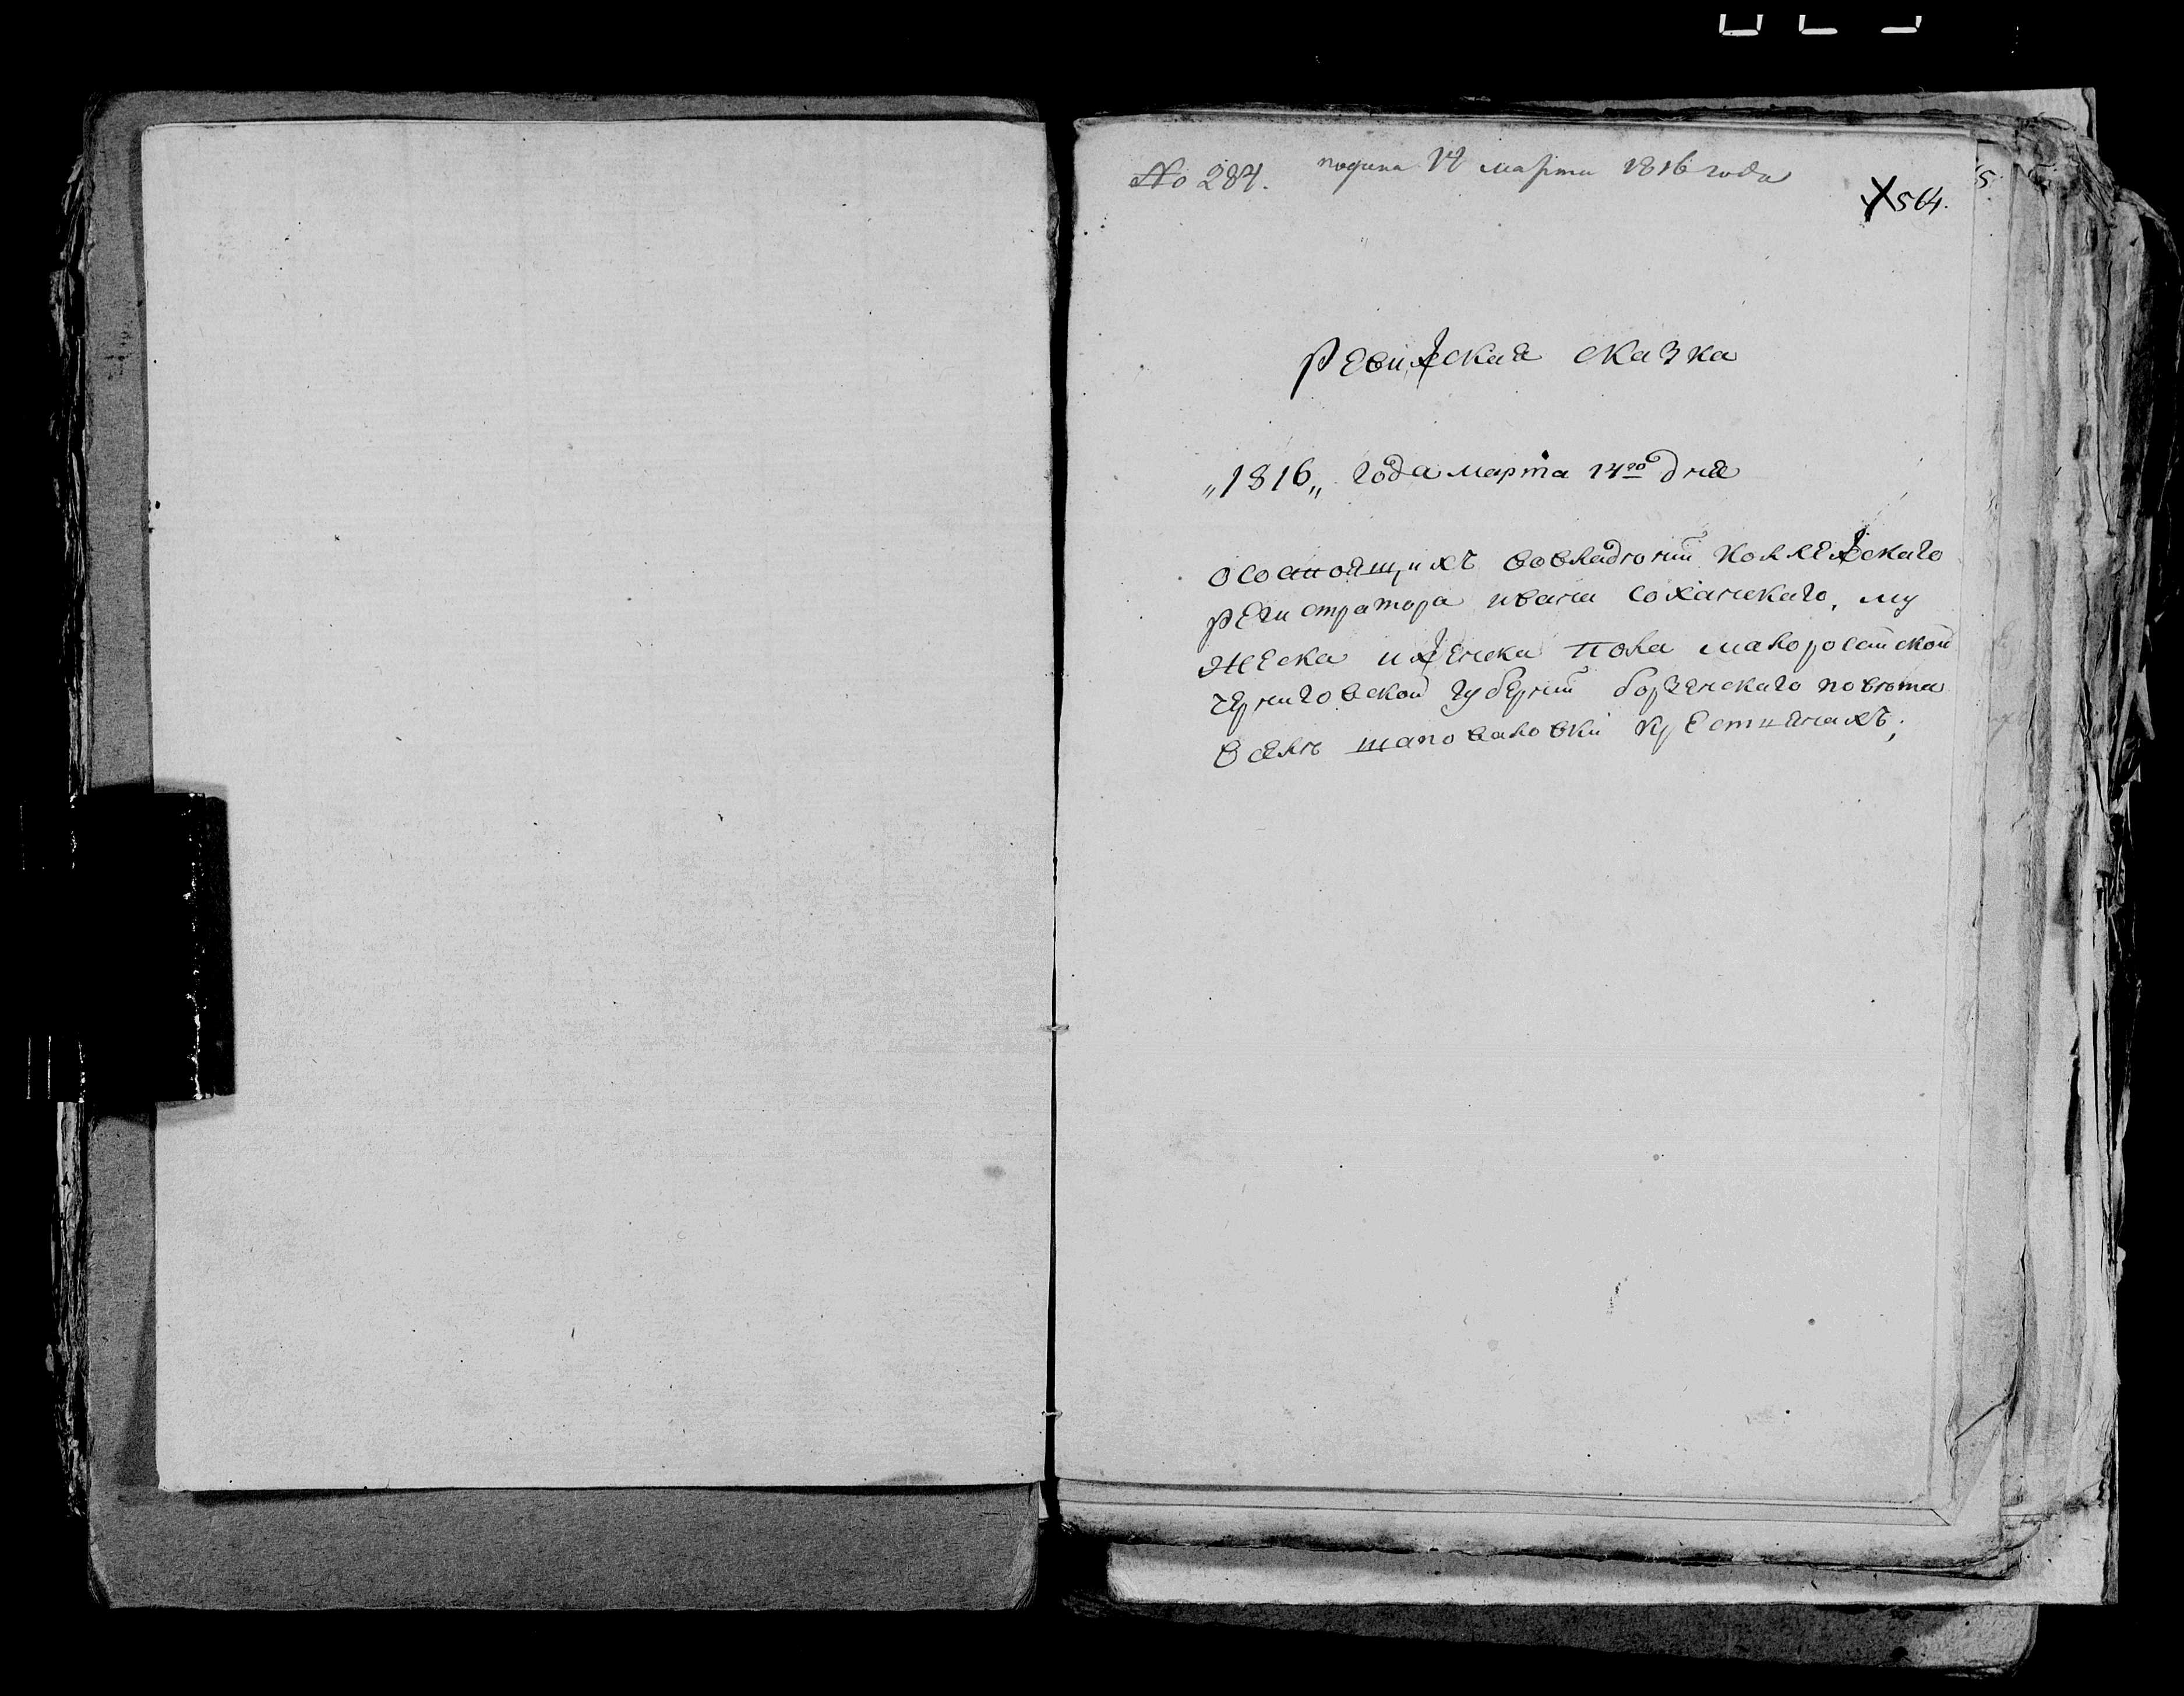 № 284. подана 14 марта 1816 года
564.
Ревизская сказка
„1816„ года марта 14го дня
осостоящихъ вовладении Коллежскаго
регистратора ивана Соханскаго, му
жеска иженска пола малоросийской
черниговской губернии борзенскаго повета
вселе шаповаловки крестиянахъ;